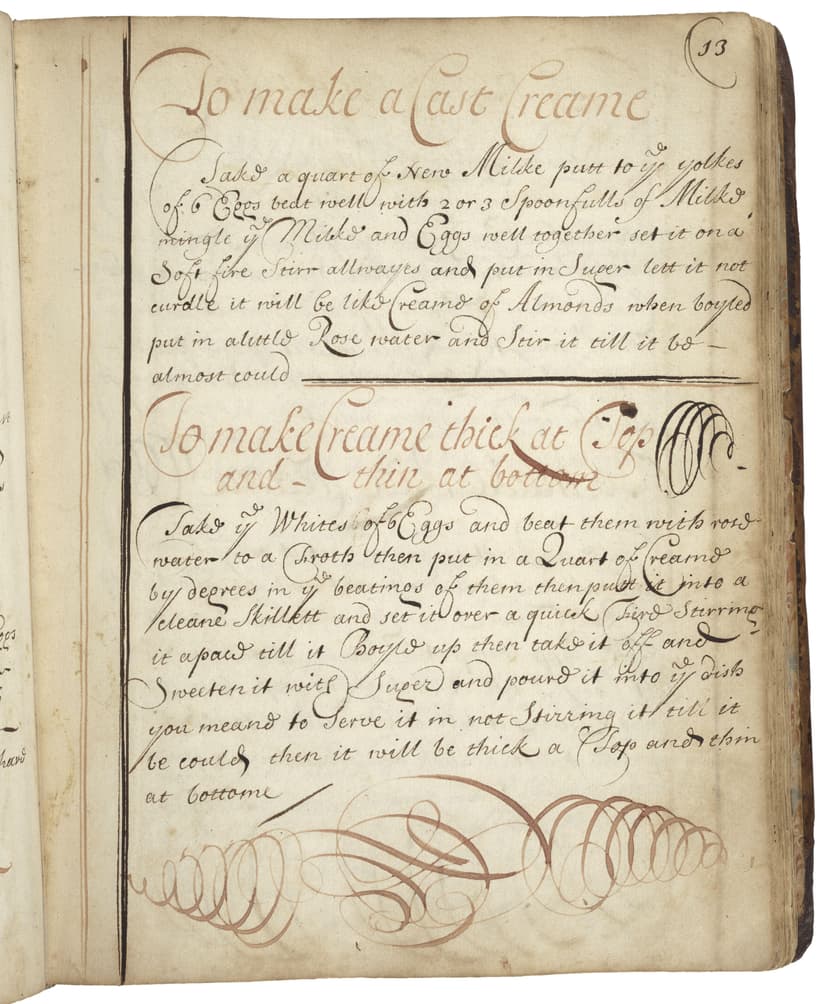 13
To make a Cast Creame
Take a quart of New Milke putt to yͤ yolkes
of 6 Eggs beat well with 2 or 3 Spoonfulls of Milke
mingle yͤ Milke and Eggs well together set it on a
Soft fire Stirr allwayes and put in Suger lett it not
curdle it will be like Creame of Almonds when boyled
put in a little Rose water and Stir it till it be –
almost could
To make Creame thick at Top
and – thin at bottom
Take yͤ Whites of 6 Eggs and beat them with rose
water to a Froth then put in a Quart of Creame
by degrees in yͤ beatings of them then putt it into a
cleane Skillett and set it over a quick Fire Stirring
it apace till it Boyle up then take it off and
Sweeten it with Suger and poure it into yͤ dish
you meane to Serve it in not Stirring it till it
be could then it will be thick a Top and thin
at bottome